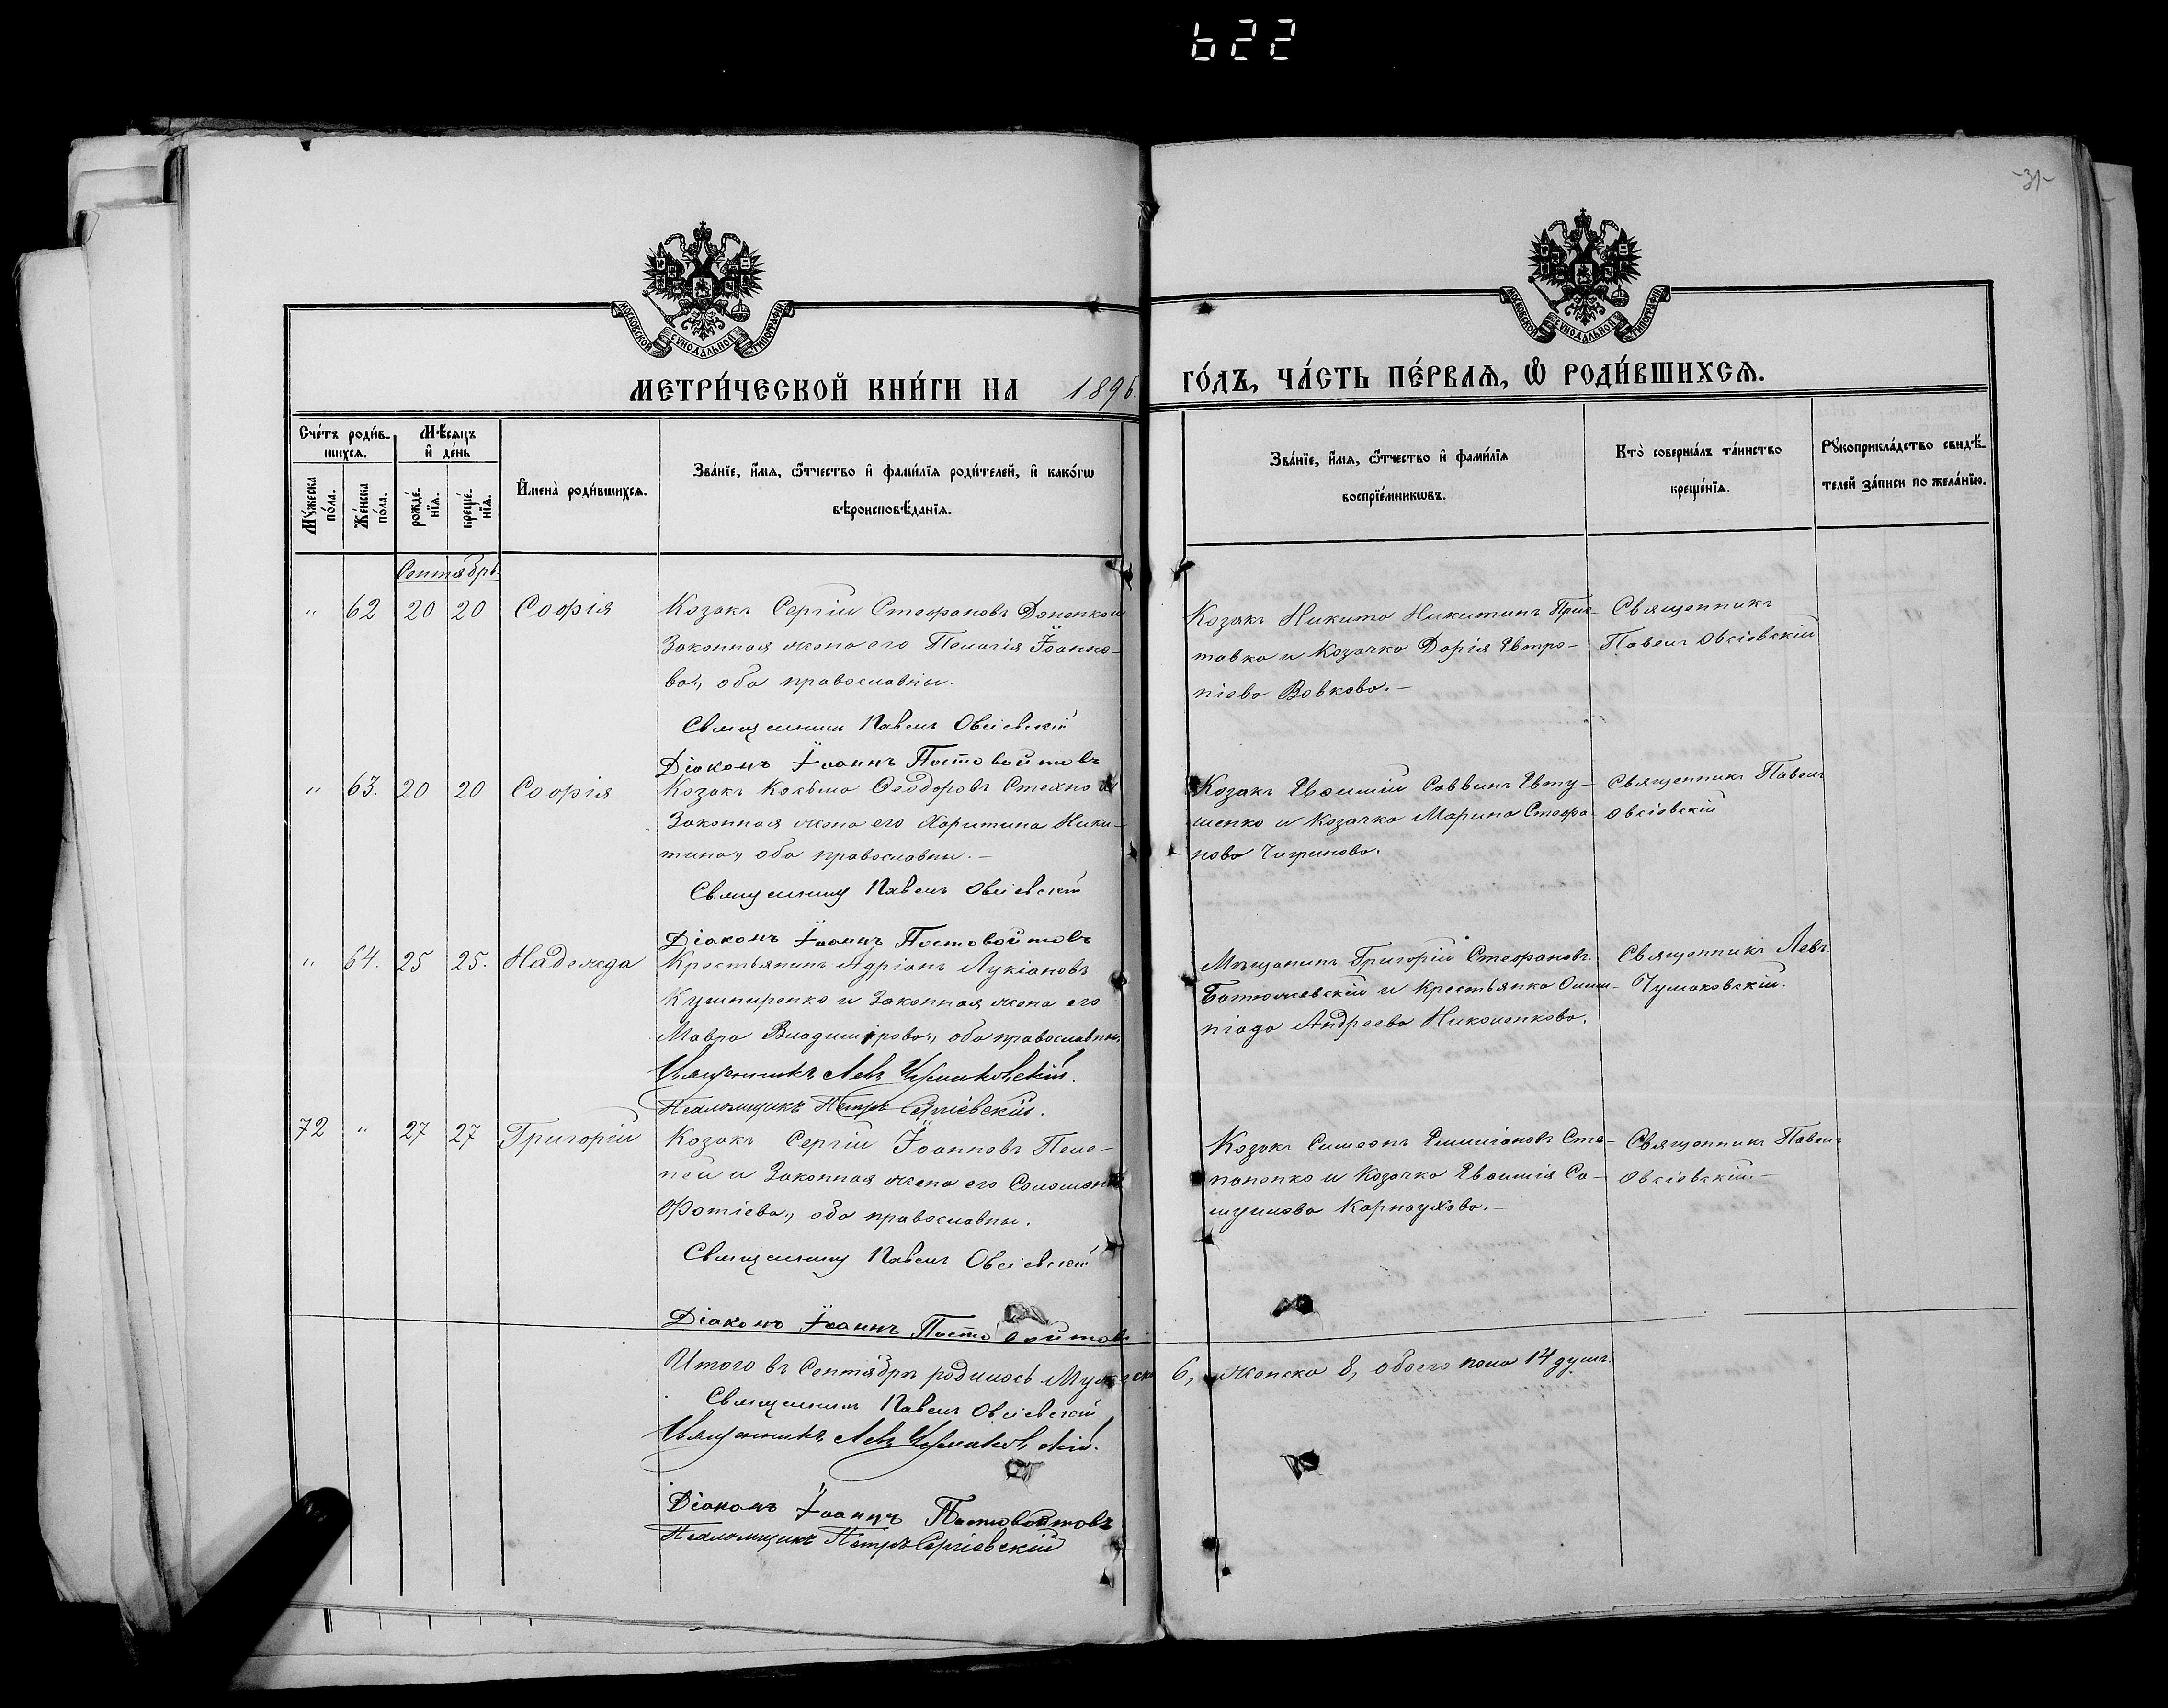 622
-31-
МОСКОВСКОЙ СѴНОДАЛЬНОЙ ТИПОГРАФІИ
МОСКОВСКОЙ СѴНОДАЛЬНОЙ ТИПОГРАФІИ
МЕТРИ́ЧЕСКОЙ КНИ́ГИ НА 1896.
ГО́ДЪ, ЧА́СТЬ ПЕ́РВАЯ, Ѽ РОДИ́ВШИХСЯ.
Сче́тъ роди́в-
шихся.
Мѣ́сяцъ
и҆ де́нь
Мꙋ́жеска
по́ла.
Же́нска
по́ла.
рожде́-
нїя.
креще́-
нїя.
И҆мена̀ роди́вшихся.
Зва́нїе, и҆́мя, ѻ҆́тчество и҆ фами́лїя роди́телей, и҆ како́гѡ
вѣроисповѣ́данїя.
Зва́нїе, и҆́мя, ѻ҆́тчество и҆ фами́лїя
воспрїе́мникѡвъ.
Кто̀ соверша́лъ та́инство
креще́нїя.
Рꙋкоприкла́дство свидѣ́-
телей за́писи по жела́нїю.
Сентябрь.
" 62 20 20 Софія
Козакъ Сергій Стефановъ
Законная жена его Пелагія Іоанно-
ва, оба православны.
Священникъ Павелъ Овсіевскій
Діаконъ Іоаннъ Постовойтовъ
Козакъ Никита Никитинъ При-
тавка и Козачка Дарія Евтро-
піева Вовкова.-
Священникъ
Павелъ Овсіевскій
" 63. 20 20 Софія
Козакъ Козьма Ѳеодоровъ
Законная жена его Харитина Ники-
тина, оба православны.-
Священникъ Павелъ Овсіевскій
Діаконъ Іоаннъ Постовойтовъ
Козакъ Евѳимій Саввинъ Евту-
шенко и Козачка Марина Стефа-
нова Чигринова.
Священникъ Павелъ
Овсіевскій
" 64. 25 25. Надежда
Крестьянинъ Адріанъ Лукіановъ
Кушниренко и Законная жена его
Мавра Владимірова, оба православны,
Священникъ Левъ Чумаковскій.
Псаломщикъ Петръ Сергіевскій.
Мѣщанинъ Григорій Стефановъ
и Крестьянка Олим-
піада Андреева Николенкова.
Священникъ Левъ
Чумаковскій.
72 " 27 27 Григорій
Козакъ Сергій Іоанновъ Пеле-
пей и Законная жена его
Фотіева, оба православны.
Священникъ Павелъ Овсіевскій
Діаконъ Іоаннъ Постовойтовъ
Козакъ Симеонъ Емиліановъ Сте-
паненко и Козачка Евѳимія Са-
муилова Карпаухова.-
Священникъ Павелъ
Овсіевскій-
Итого въ Сентябрѣ родилось Мужеска 6, женска 8, обоего пола 14 душъ.
Священникъ Павелъ Овсіевскій
Священникъ Левъ Чумаковскій.
Діаконъ Іоаннъ Постовойтовъ
Псаломщикъ Петръ Сергіевскій